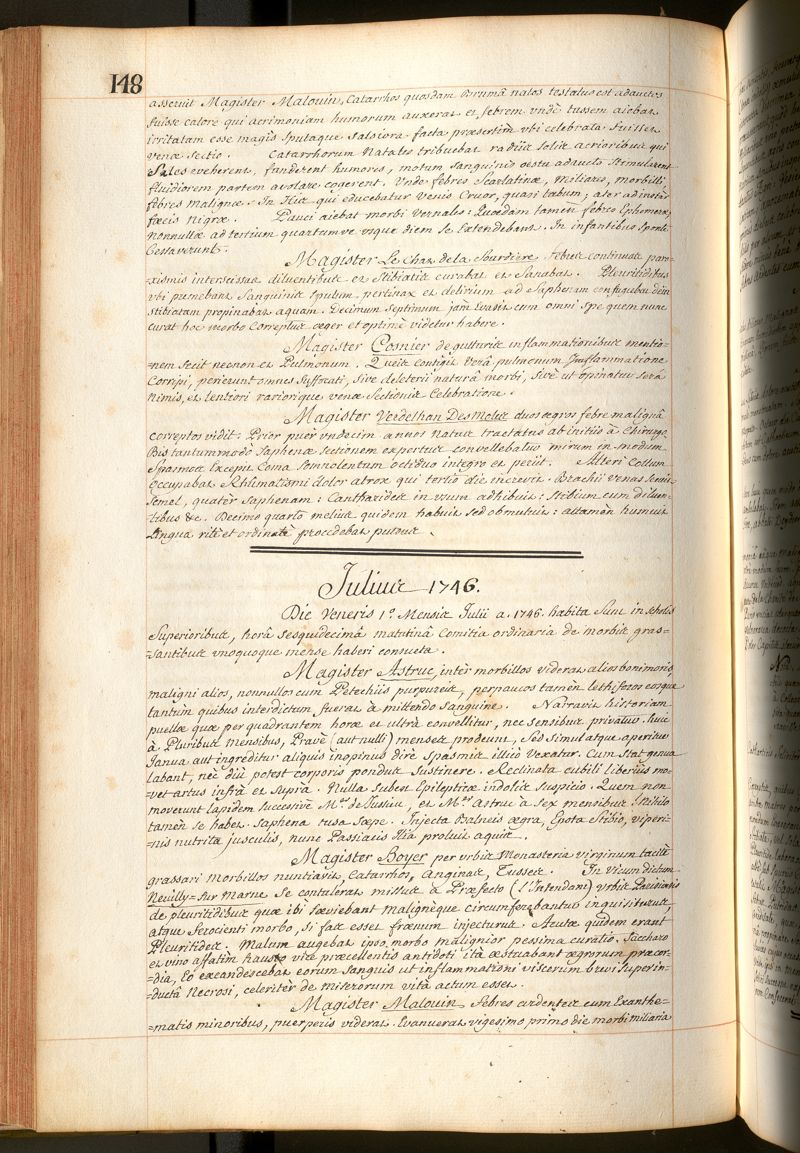 148
asseruit Magister Malouin, Catarrhos quosdam Brumâ natos testatus est adauctos
fuisse calore qui acrimoniam humorum auxerat et febrem undè tussem aiebat
irritatam esse magis sputaque salsiora facta præsertim vbi celebrata fuisset
venæ sectio. Catarrhorum Natales tribuebat radiis solis acrioribus qui
Sales eveherent, funderent humores, motum sanguinis æstu adaucto stimularent
fluidiorem partem avolare cogerent. Vnde febres Scarlatinæ, Miliares, morbilli
febres Malignæ. In His qui educebatur Venis Cruor, quasi tabum; ater ad instar
fæcis Nigræ. Pauci aiebat morbi Vernales: Quædam tamèn febres Ephemeræ,
nonnullæ ad tertium quartumve vsque diem se Extendebant. In infantibus Sponte
Cessaverunt.
Magister Le Chat de la Sourdiere febres continuas par=
=xismis interscissas diluentibus et Stibiatis curabat et Sanabat. Pleuritidibus
vbi punebant Sanguinis Sputum pertinax et delirium ad Saphenam confugiebat dein
stibiatam propinabat aquam. Decimum Septimum jàm Evasit cum omni spe quem nunc
curat hoc morbo Correptus æger et optimè videtur habere.
Magister Cosnier de gutturis inflammationibus mentio=
=nem fecit necnon et Pulmonum. Queis contigit Verâ pulmonum Inflammatione
Corripi, perierunt omnes Suffocati, sive deleteriâ naturâ morbi, sivè ut opinatus serâ
Nimis, et lentiori rariorique venæ Sectionis Celebratione.
Magister Verdelhan DesMoles duos ægros febre malignâ
correptos vidit. Prior puer vndecim annos Natus tractatus ab initiis à Chirurgo
Bis tantummodo Saphenæ sectionem expertus convellebatur mirum in modum
Spasmos Excepit Coma Somnolentum octiduo integro et periit. Alteri Collum
Occupabat Rhumatismi dolor atrox qui tertio die increvit. Brachii venas Secuit
Semel, quatèr Saphenam: Cantharides in vsum adhibuit: Stibium cum diluen=
tibus &c. Decimo quarto melius quidem habuit sed obmutuit: attamèn humuit
Lingua ritè et ordinatè procedebat pulsus.
Julius 1746.
Die Veneris 1.ª Mensis Julii a. 1746. habita Sunt in scholis
Superioribus, horâ sesquidecimâ matutinâ Comitia ordinaria de morbis gras=
=santibus vnoquoque mense haberi consueta.
Magister Astruc, intèr morbillos viderat alios boni moris,
maligni alios, nonnullos cum Petechiis purpureis, perpaucos tamèn lethiferos eosque
tantùm quibus interdictum fuerat à mittendo sanguine. Narravit historiam
puellæ quæ per quadrantem horæ et ultrà convellitur, nec sensibus privatur. huic
à Pluribus mensibus, Pravè (aut nulli) menses prodeunt, Sed simul atque aperitur
Janua aut ingreditur aliquis inopinus dirè Spasmis illicò Vexatur. Cum Stat genua
labant, nèc diù potest corporis pondus Sustinere. Recclinata cubili liberius mo=
=vet artus infrà et Suprà. Nulla subest Epilepticæ indolis Suspicio. Quem non
moverunt lapidem successive M.er de Jussieu, et M.er Astruc à Sex mensibus! Nihilo
tamèn se habet. Saphena tusa Sæpe. Injecta Balneis ægra, Epota Stibio, viperi=
=nis nutrita jusculis, nunc Passiacis Ilia proluit aquis.
Magister Boyer per urbis Monasteria virginum tacitè
grassari Morbillos nuntiavit, Catarrhos, Anginas, Tusses. In Vicum dictum
Neuilly=sur Marne Se contulerat missus à Præfecto (l'Intendant) Vrbis Parisiensis
de pleuritidibus quæ ibi sæviebant malignèque circumferebantur inquisiturus,
atque Ferocienti morbo, si fas esset frænum injecturus. Acutæ quidem erant
Pleuritides. Malum augebat ipso morbo malignior pessima curatio. Saccharo
et vino affatim hausto vice præcellentis antidoti ità æstuabant ægrorum præcor=
=dia, Eo excandescebat eorum sanguis ut inflammationi viscerum brevi superin=
=ductâ Necrosi, celeriter de miserorum vitâ actum esset.
Magister Malouin Febres ardentes cum Exanthe=
=matis minoribus, puerperis viderat. Evanuerat vigesimo primo die morbi miliaria